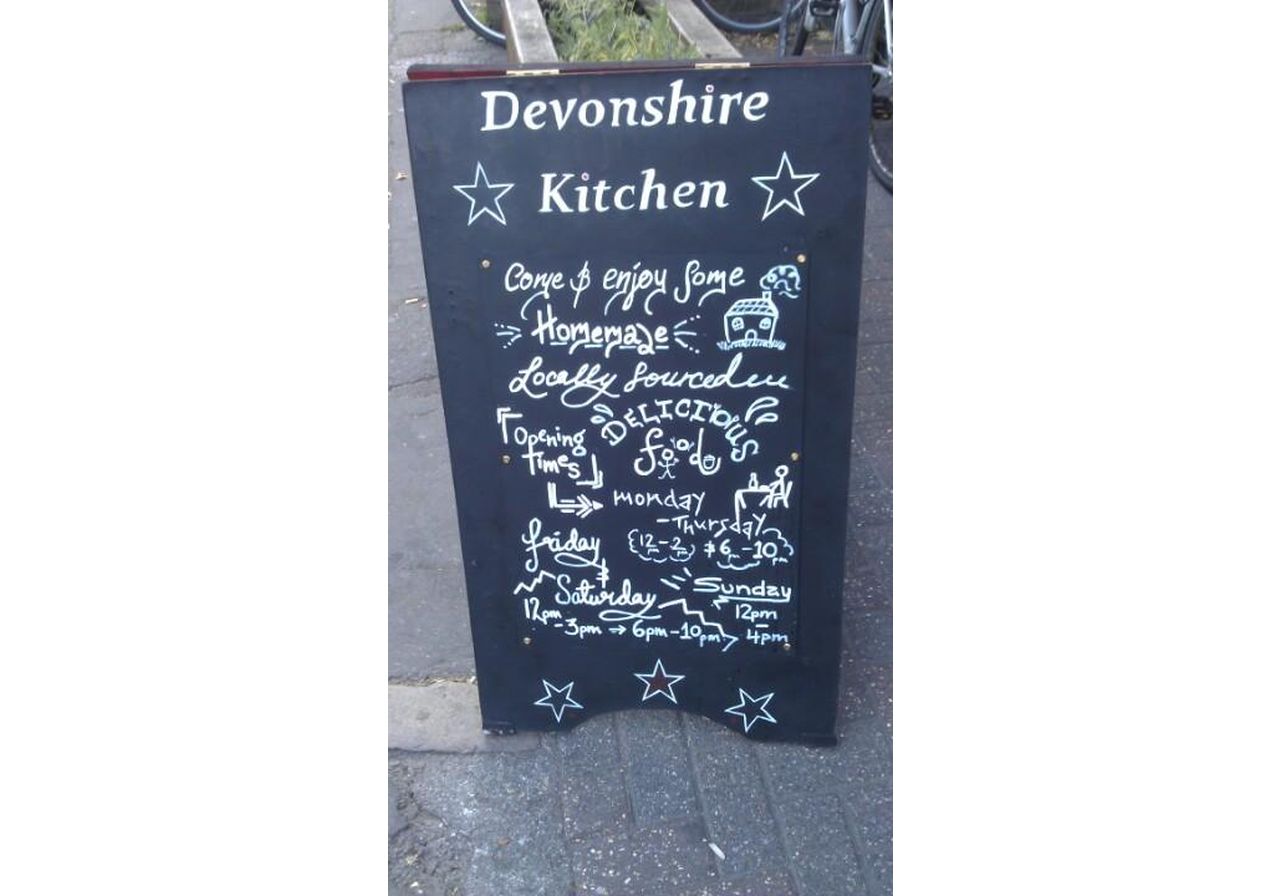 Devonshire
Kitchen
Come & enjoy Some
Homemade
Locally Sourced
DELICIOUS
food
Opening
Times
monday
-Thursday
12-2pm & 6pm-10pm
friday
&
Saturday
12pm
-3pm → 6pm-10pm
Sunday
12pm
-
4pm